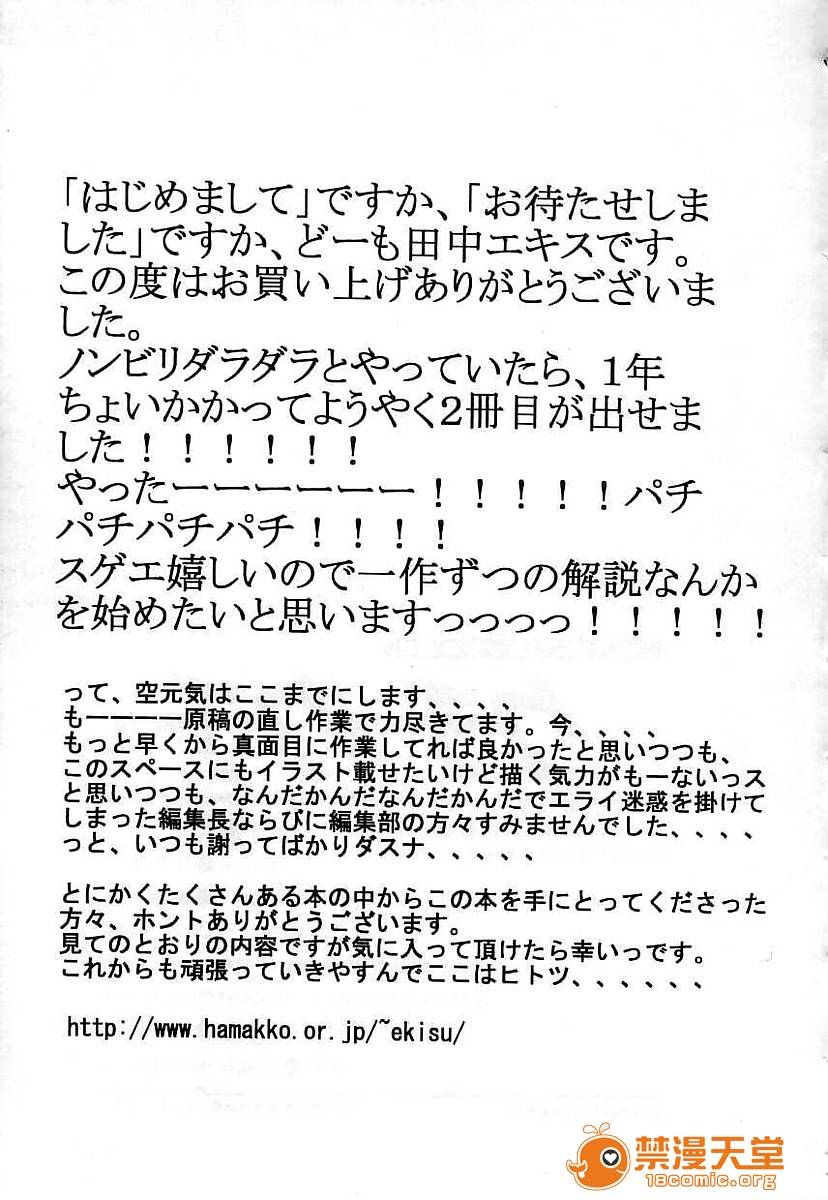 「はじめまして」ですか、「お待たせしま
した」ですか、どーも田中エキスです。
この度はお買い上げありがとうございま
した。
ノンビリダラダラとやっていたら、1年
ちょいかかってようやく2冊目が出せま
した！！！！！！
やったーーーーーー！！！！！パチ
パチパチパチ！！！！
スゲエ嬉しいので一作ずつの解説なんか
を始めたいと思いますっっっっ！！！！！
って、空元気はここまでにします、、、、
もーーーー原稿の直し作業で力尽きてます。今、、、、
もっと早くから真面目に作業してれば良かったと思いつつも、
このスペースにもイラスト載せたいけど描く気力がもーないっス
と思いつつも、なんだかんだなんだかんだでエライ迷惑を掛けて
しまった編集長ならびに編集部の方々すみませんでした、、、、
っと、いつも謝ってばかりダスナ、、、、、
とにかくたくさんある本の中からこの本を手にとってくださった
方々、ホントありがとうございます。
見てのとおりの内容ですが気に入って頂けたら幸いっです。
これからも頑張っていきやすんでここはヒトツ、、、、、、
http://www.hamakko.or.jp/~ekisu/
禁漫天堂
18comic.org